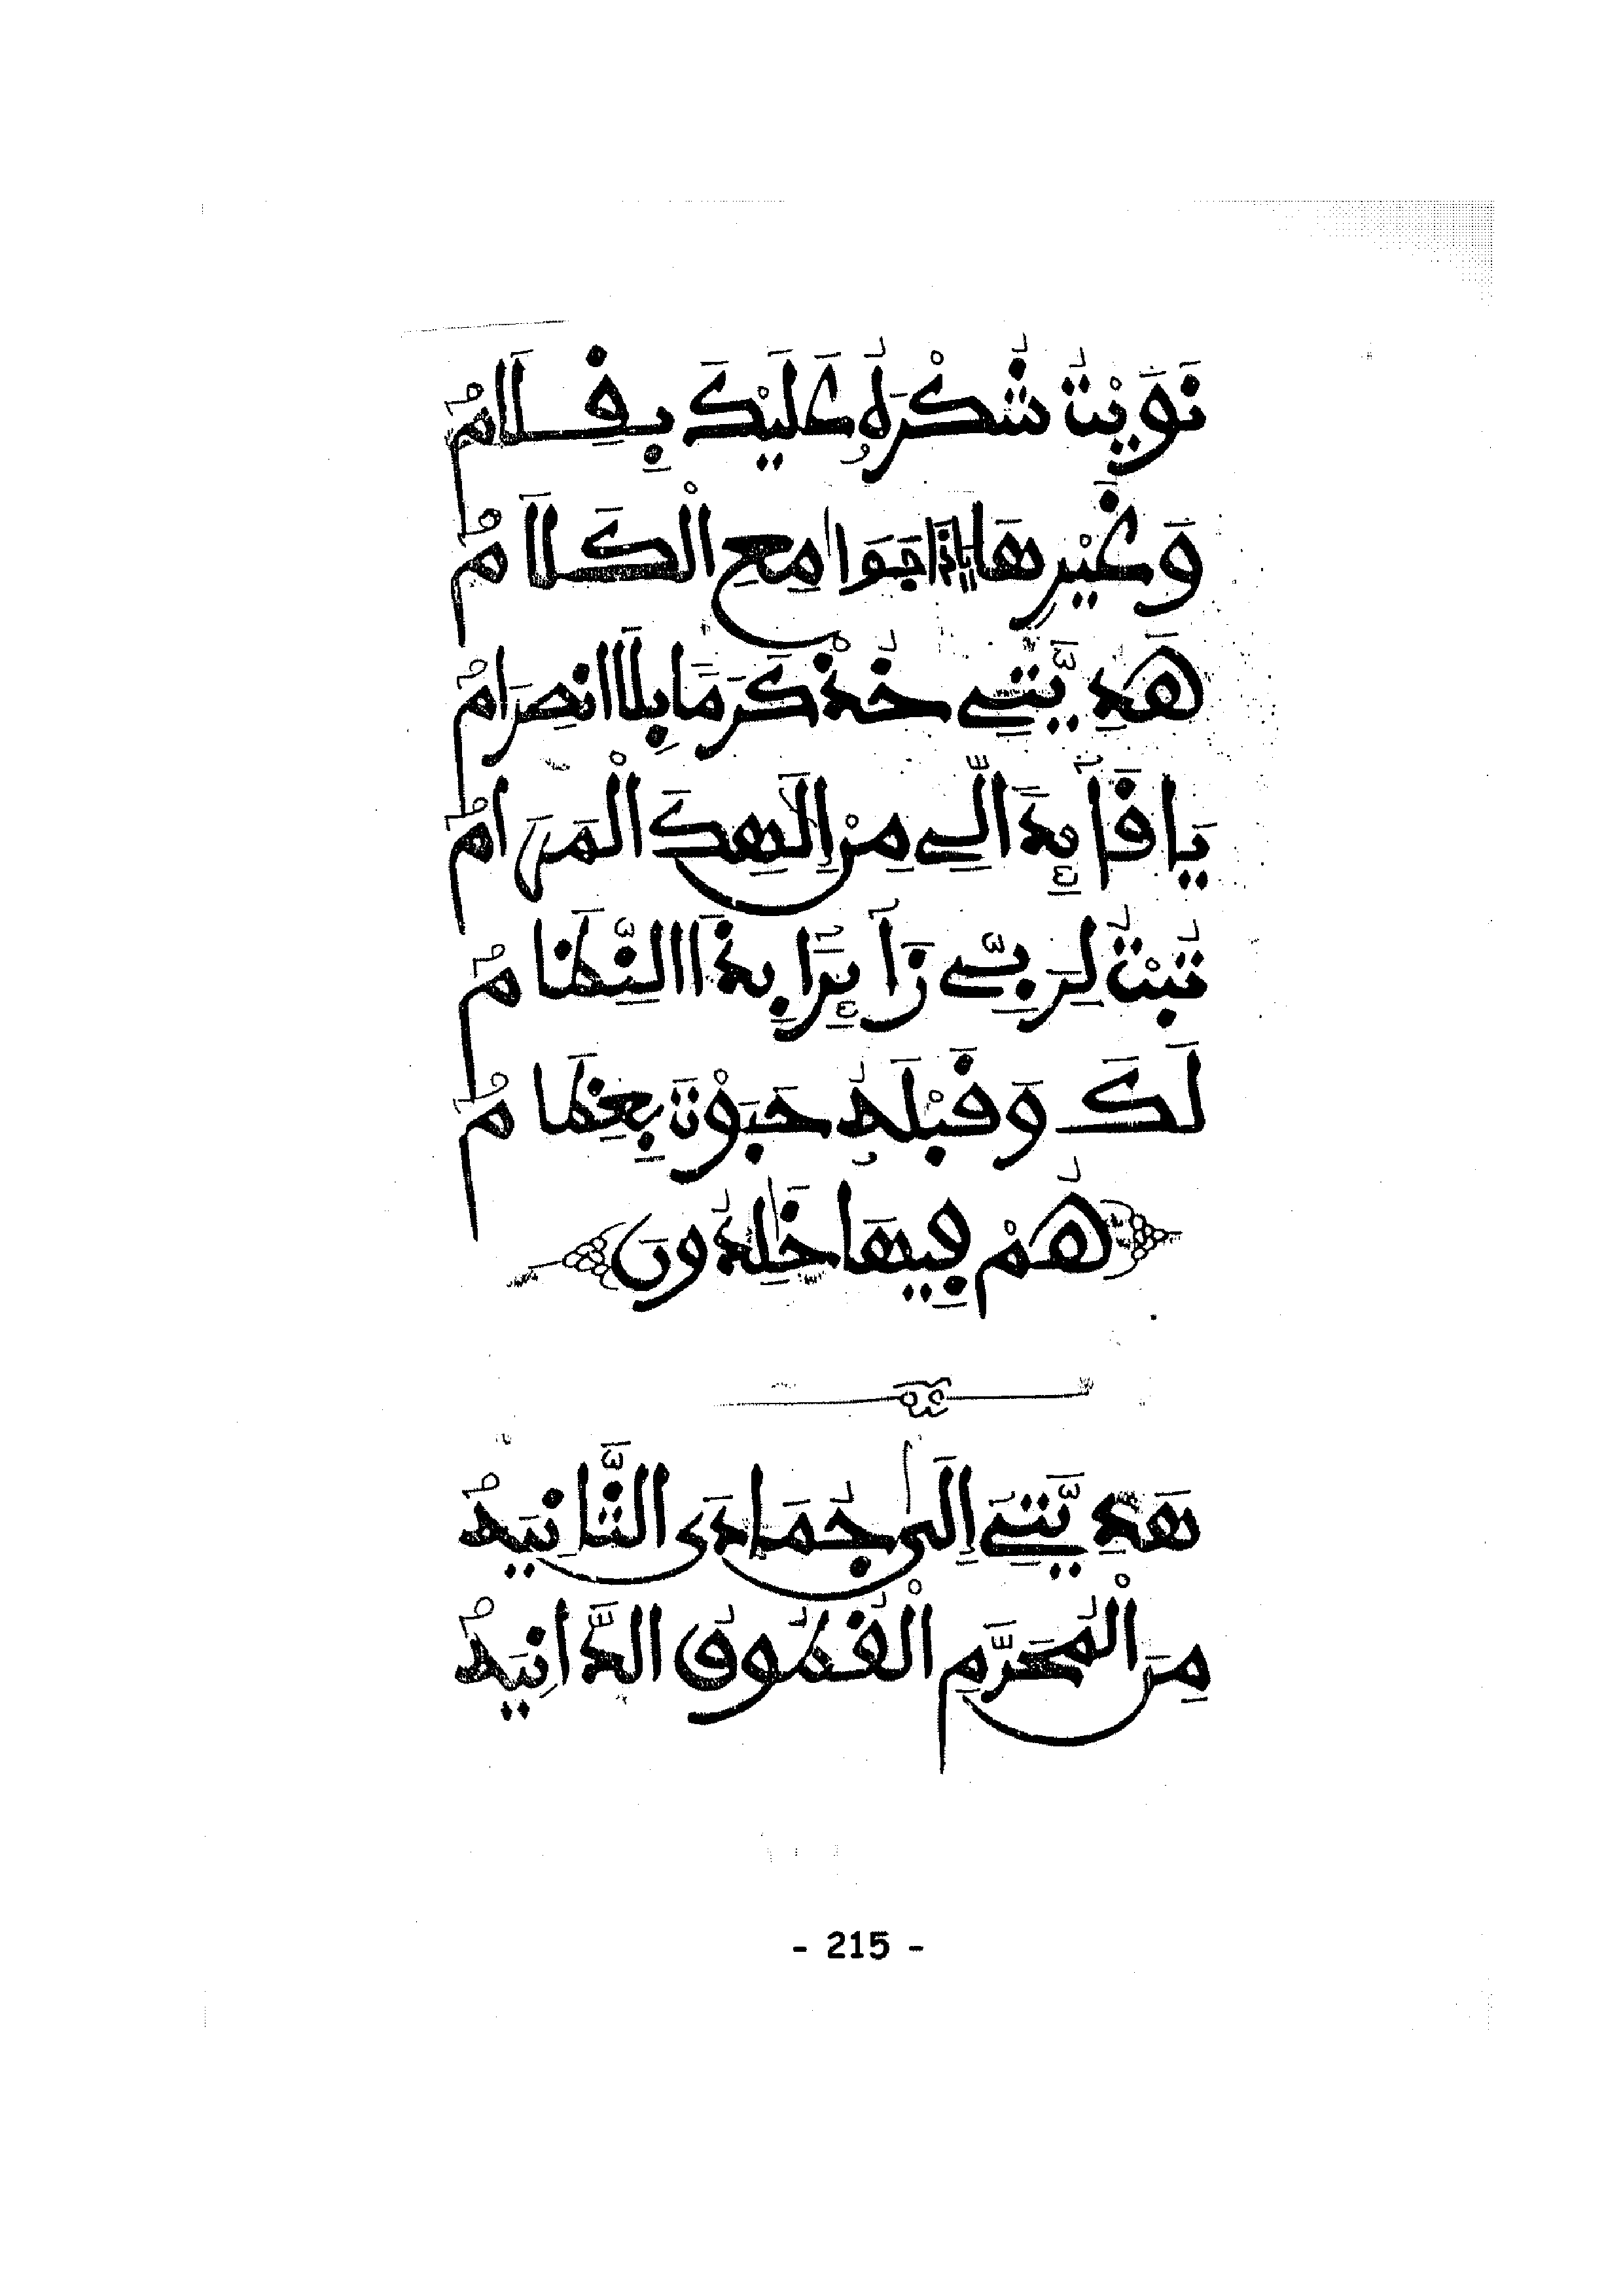 نَوَيْتُ شُكْرَهُ عَلَيْكَ بِقِلَامٌ
وَغَيْرِهَا يَاذَا جَوَامِعِ الْكَلَامْ
هَدِيَّتِي خُذْ كَرَمًا بِلَا انْصِرَامْ
يَا قَآئِدًا إِلَى مِنَ إِلَيْهِ الْمَرَامْ
تُبْتُ لِرَبِّي زَآئِرًا بِذَا النِّظَامْ
لَكَ وَقَبْلَهُ حَبَوْتَ بِعِظَامْ
هُمْ فِيهَا خَلِدُونَ
هَدِيَّتِي إِلَى جُمَادَى الثَّانِيَهْ
مِنَ الْمُحَرَّمِ الْقُطُوفُ الدَّانِيَهْ
- 215 -